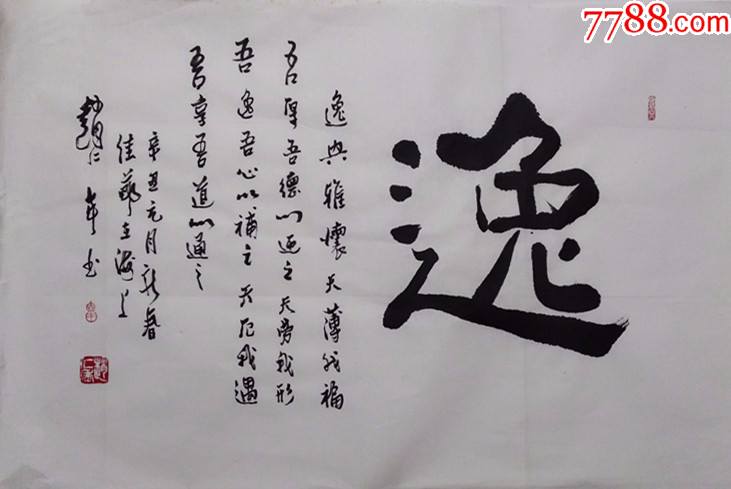 7788.com
逸
逸興雅懷天薄我福
吾厚吾德以迓之天勞我形
吾逸吾心以補之天厄我遇
吾享吾道以通之
辛丑元月新春
佳節在海上
趙仁年书